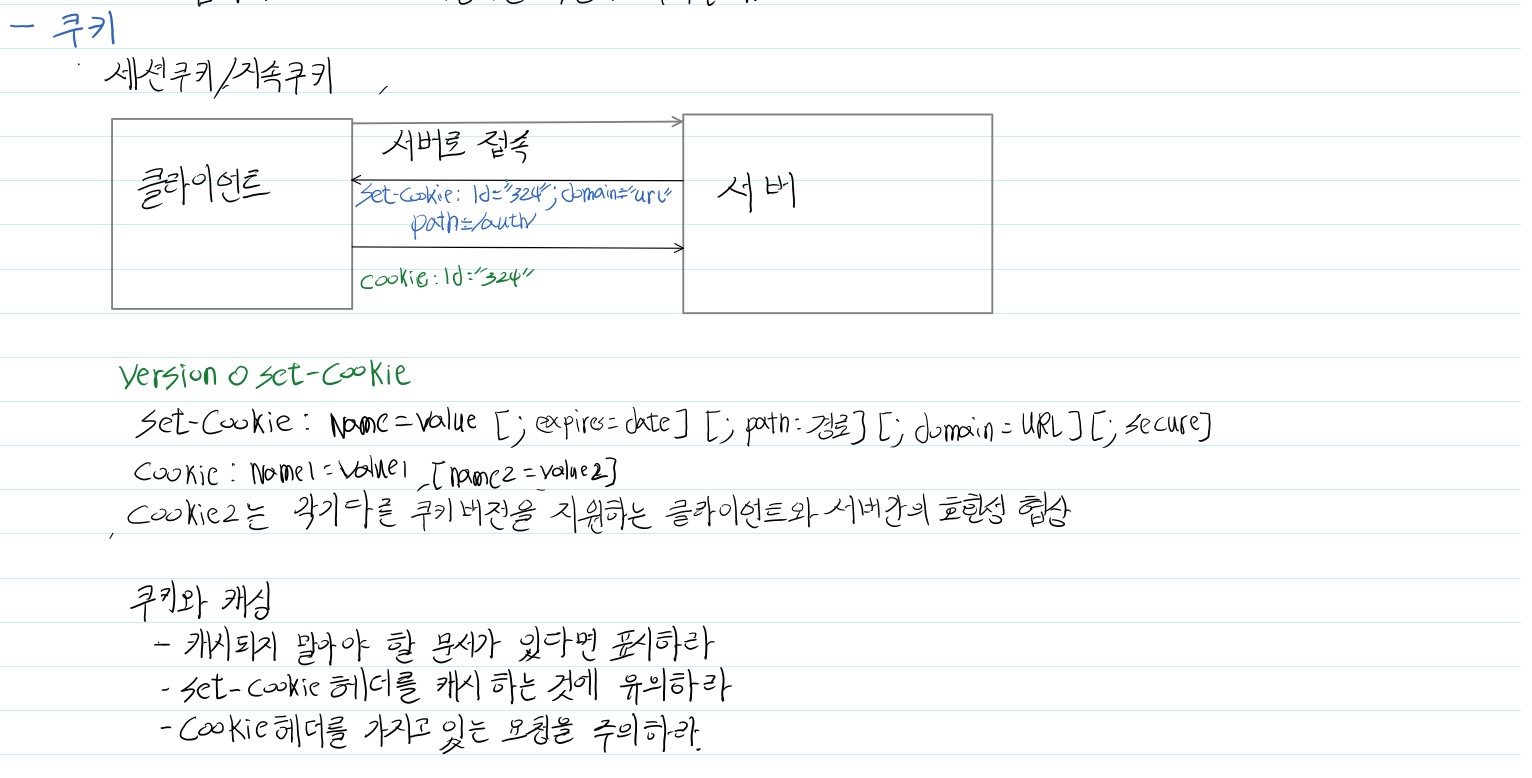 - 쿠키
세션쿠키/지속쿠키
서버로 접속
클라이언트
Set-Cookie: Id="324"; domain="url"
path=/auth
서버
Cookie: Id="324"
Version 0 Set-Cookie
Set-Cookie : Name=Value [; expires=date] [; path=경로] [; domain=URL] [; secure]
Cookie : Name1=Value1 [name2=value2]
Cookie2는 각기다른 쿠키버전을 지원하는 클라이언트와 서버간의 호환성 협상
쿠키와 캐싱
- 캐시되지 말아야 할 문서가 있다면 표시하라
- Set-Cookie 헤더를 캐시 하는 것에 유의하라
- Cookie 헤더를 가지고 있는 요청을 주의하라.